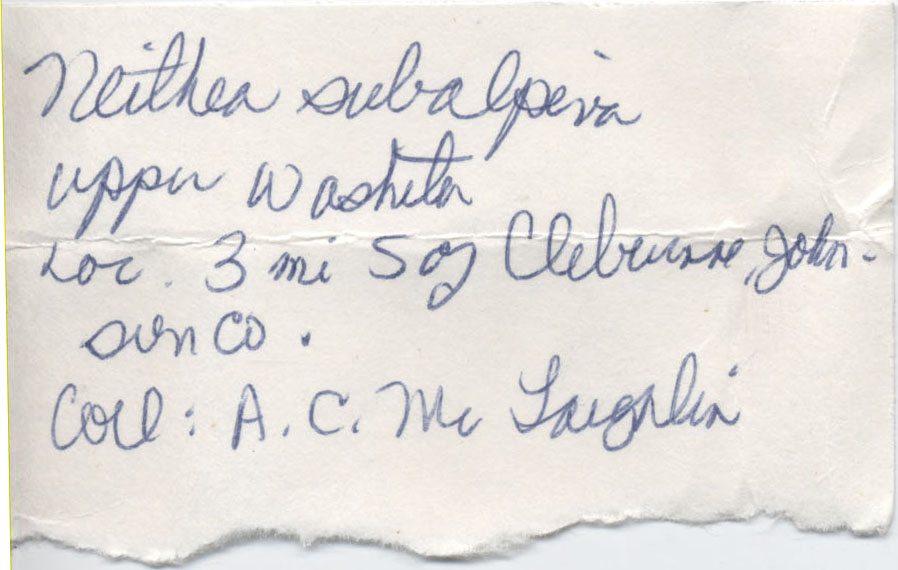 Neithea subalpina
upper Washita
Loc. 3 mi S of Cleburne, John-
son Co.
Coll: A. C. Mc Laughlin